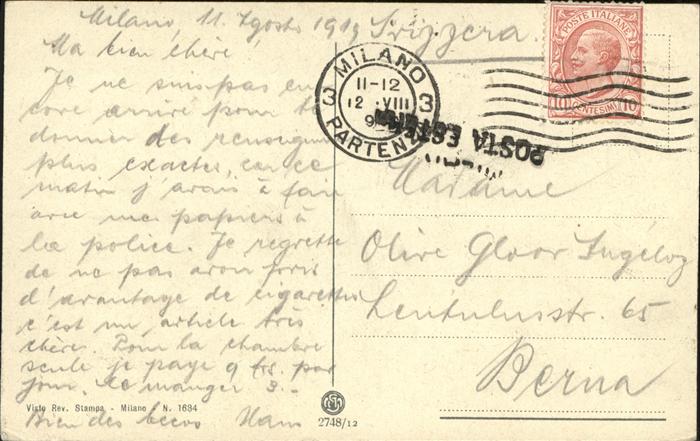 Milano, 11. Agosto 1919
Ma bien chère,
Je ne suis pas en
core arrivé pour te
donner des renseignem
plus exactes, car ce
matin j'avais à faire
avec mes papiers à
la police. Je regrette
de ne pas avoir
d'avantage de cigarettes
c'est un article très
chère. Pour la chambre
seule je paye 9 frs. par
jour. Le manger 3.-
Bien des becos Hans
Visto Rev. Stampa - Milano N. 1634
2748/12
Svizzera
POSTE ITALIANE
10 CENTESIMI 10
MILANO
11-12
12 VIII
3 3
PARTENZA
POSTA ESTERA
Madame
Olive Gloor Ingéloz
Lentulusstr. 65
Berna